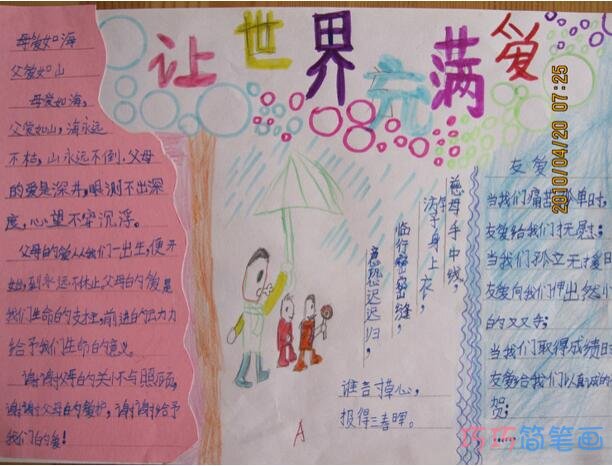 让世界充满爱
母爱如海
父爱如山
母爱如海,
父爱如山,海永远
不枯,山永远不倒.父母
的爱是深井,眼测不出深
度,心望不穿沉浮。
父母的爱从我们一出生,便开
始,到永远不休止父母的爱是
我们生命的支柱,前进的动力
给予我们生命的意义。
谢谢父母的关心与照顾,
谢谢父母的爱护,谢谢给予
我们的爱!
慈母手中线,
游子身上衣,
临行密密缝,
意恐迟迟归,
谁言寸草心,
报得三春晖。
A
友爱
当我们痛苦
时,
友爱给我们抚慰;
当我们孤立无援
友爱向我们伸出
的双手;
当我们取得成绩
友爱给我们以真诚的
贺;
2010/04/20 07:25
巧巧简笔画